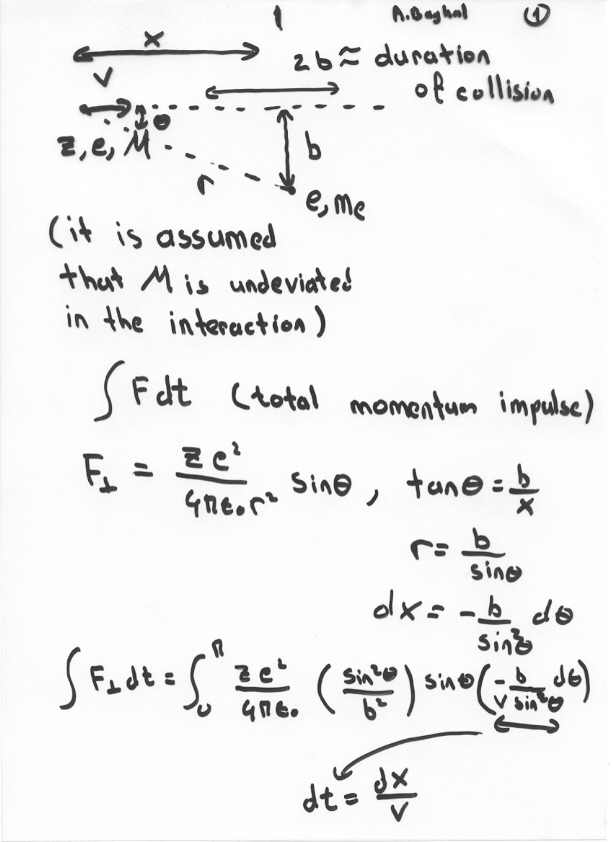 1 A. Baghal ①
x
2b ≈ duration
of collision
v
θ
z, e, M
b
r
e, me
(it is assumed
that M is undeviated
in the interaction)
∫ F dt (total momentum impulse)
F⊥ = ze²/4πε₀r² sinθ, tanθ = b/x
r = b/sinθ
dx = -b/sin²θ dθ
∫ F⊥ dt = ∫₀^π ze²/4πε₀ (sin²θ/b²) sinθ (-b/v sin²θ dθ)
dt = dx/v